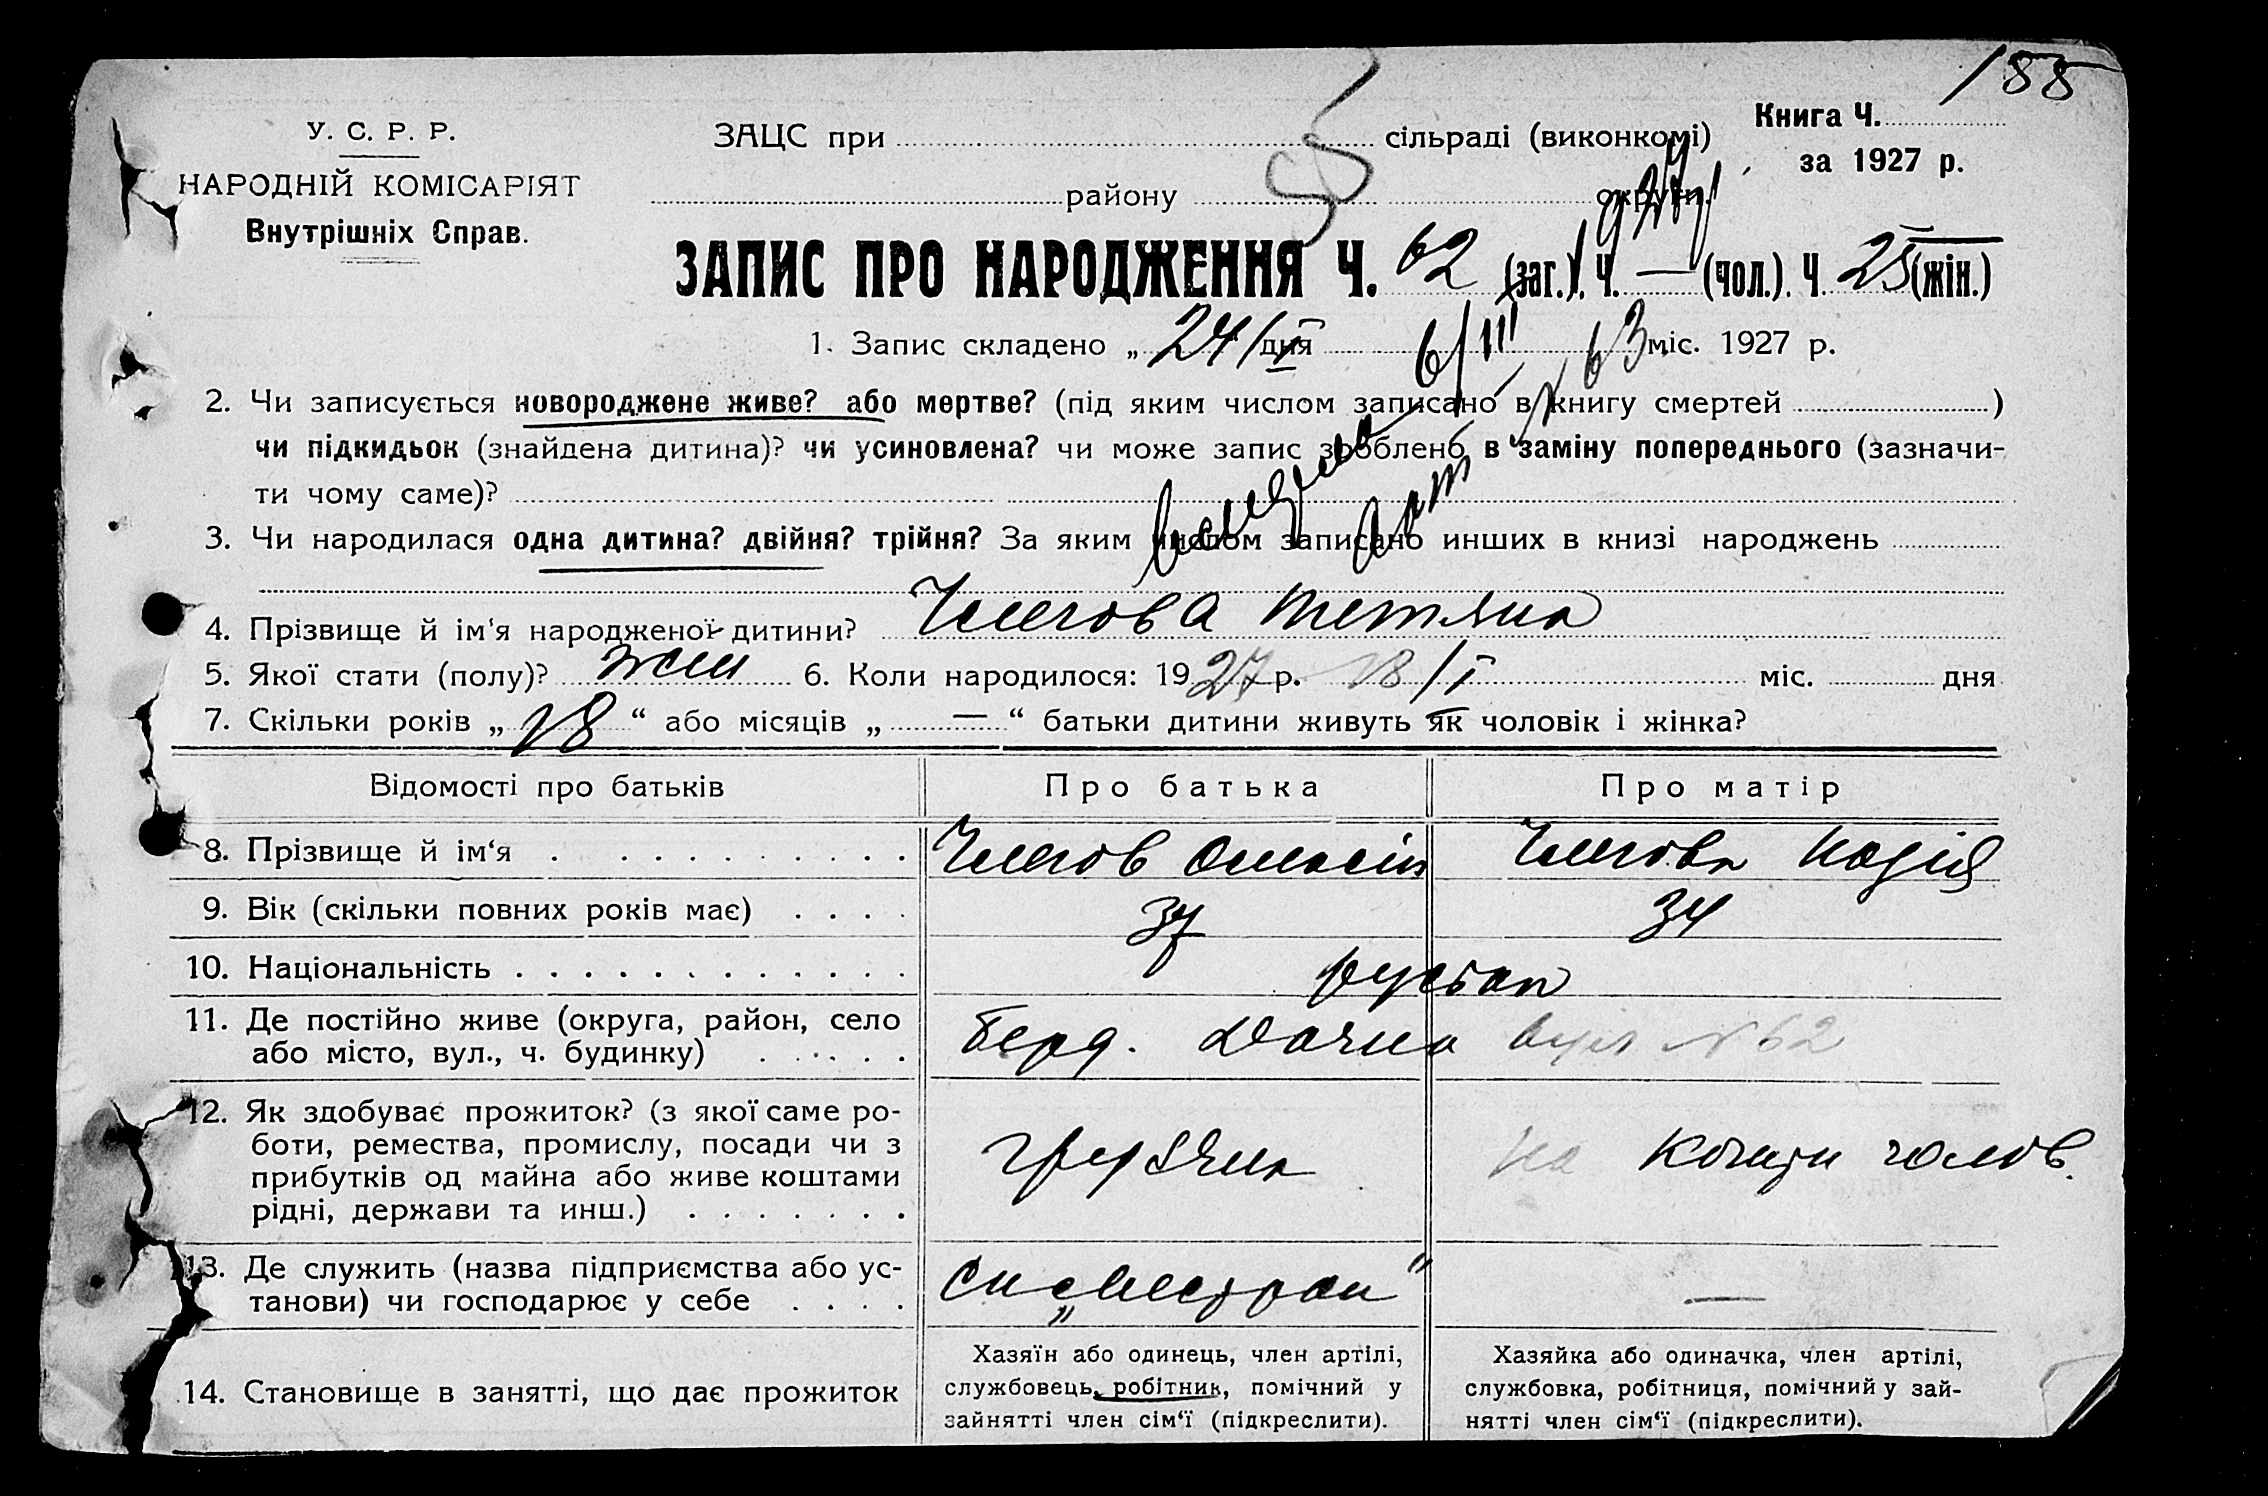 188
У. С. Р. Р.
НАРОДНІЙ КОМІСАРІЯТ
Внутрішніх Справ.
ЗАЦС при сільраді (виконкомі)
району округи.
Книга Ч.
за 1927 р.
ЗАПИС ПРО НАРОДЖЕННЯ Ч. 62 (заг.), Ч. — (чол.). Ч. 25 (жін.)
1. Запис складено „ 24/I дня міс. 1927 р.
6/III
63
2. Чи записується новороджене живе? або мертве? (під яким числом записано в книгу смертей )
чи підкидьок (знайдена дитина)? чи усиновлена? чи може запис зроблено в заміну попереднього (зазначи-
ти чому саме)?
3. Чи народилася одна дитина? двійня? трійня? За яким числом записано инших в книзі народжень
4. Прізвище й ім'я народженої дитини? Тетяна
5. Якої стати (полу)? жін 6. Коли народилося: 1927 р. 18/I міс. дня
7. Скільки років „ 18 “ або місяців „ — “ батьки дитини живуть як чоловік і жінка?
Відомості про батьків Про батька Про матір
8. Прізвище й ім‘я Надія
9. Вік (скільки повних років має) 37 34
10. Національність
11. Де постійно живе (округа, район, село
або місто, вул., ч. будинку)
Берд. Дачна вул №62
12. Як здобуває прожиток? (з якої саме ро-
боти, ремества, промислу, посади чи з
прибутків од майна або живе коштами
рідні, держави та инш.)
на кошти чолов.
13. Де служить (назва підприємства або ус-
танови) чи господарює у себе
—
14. Становище в занятті, що дає прожиток
Хазяїн або одинець, член артілі,
службовець, робітник, помічний у
зайнятті член сім‘ї (підкреслити).
Хазяйка або одиначка, член артілі,
службовка, робітниця, помічний у зай-
нятті член сім‘ї (підкреслити).